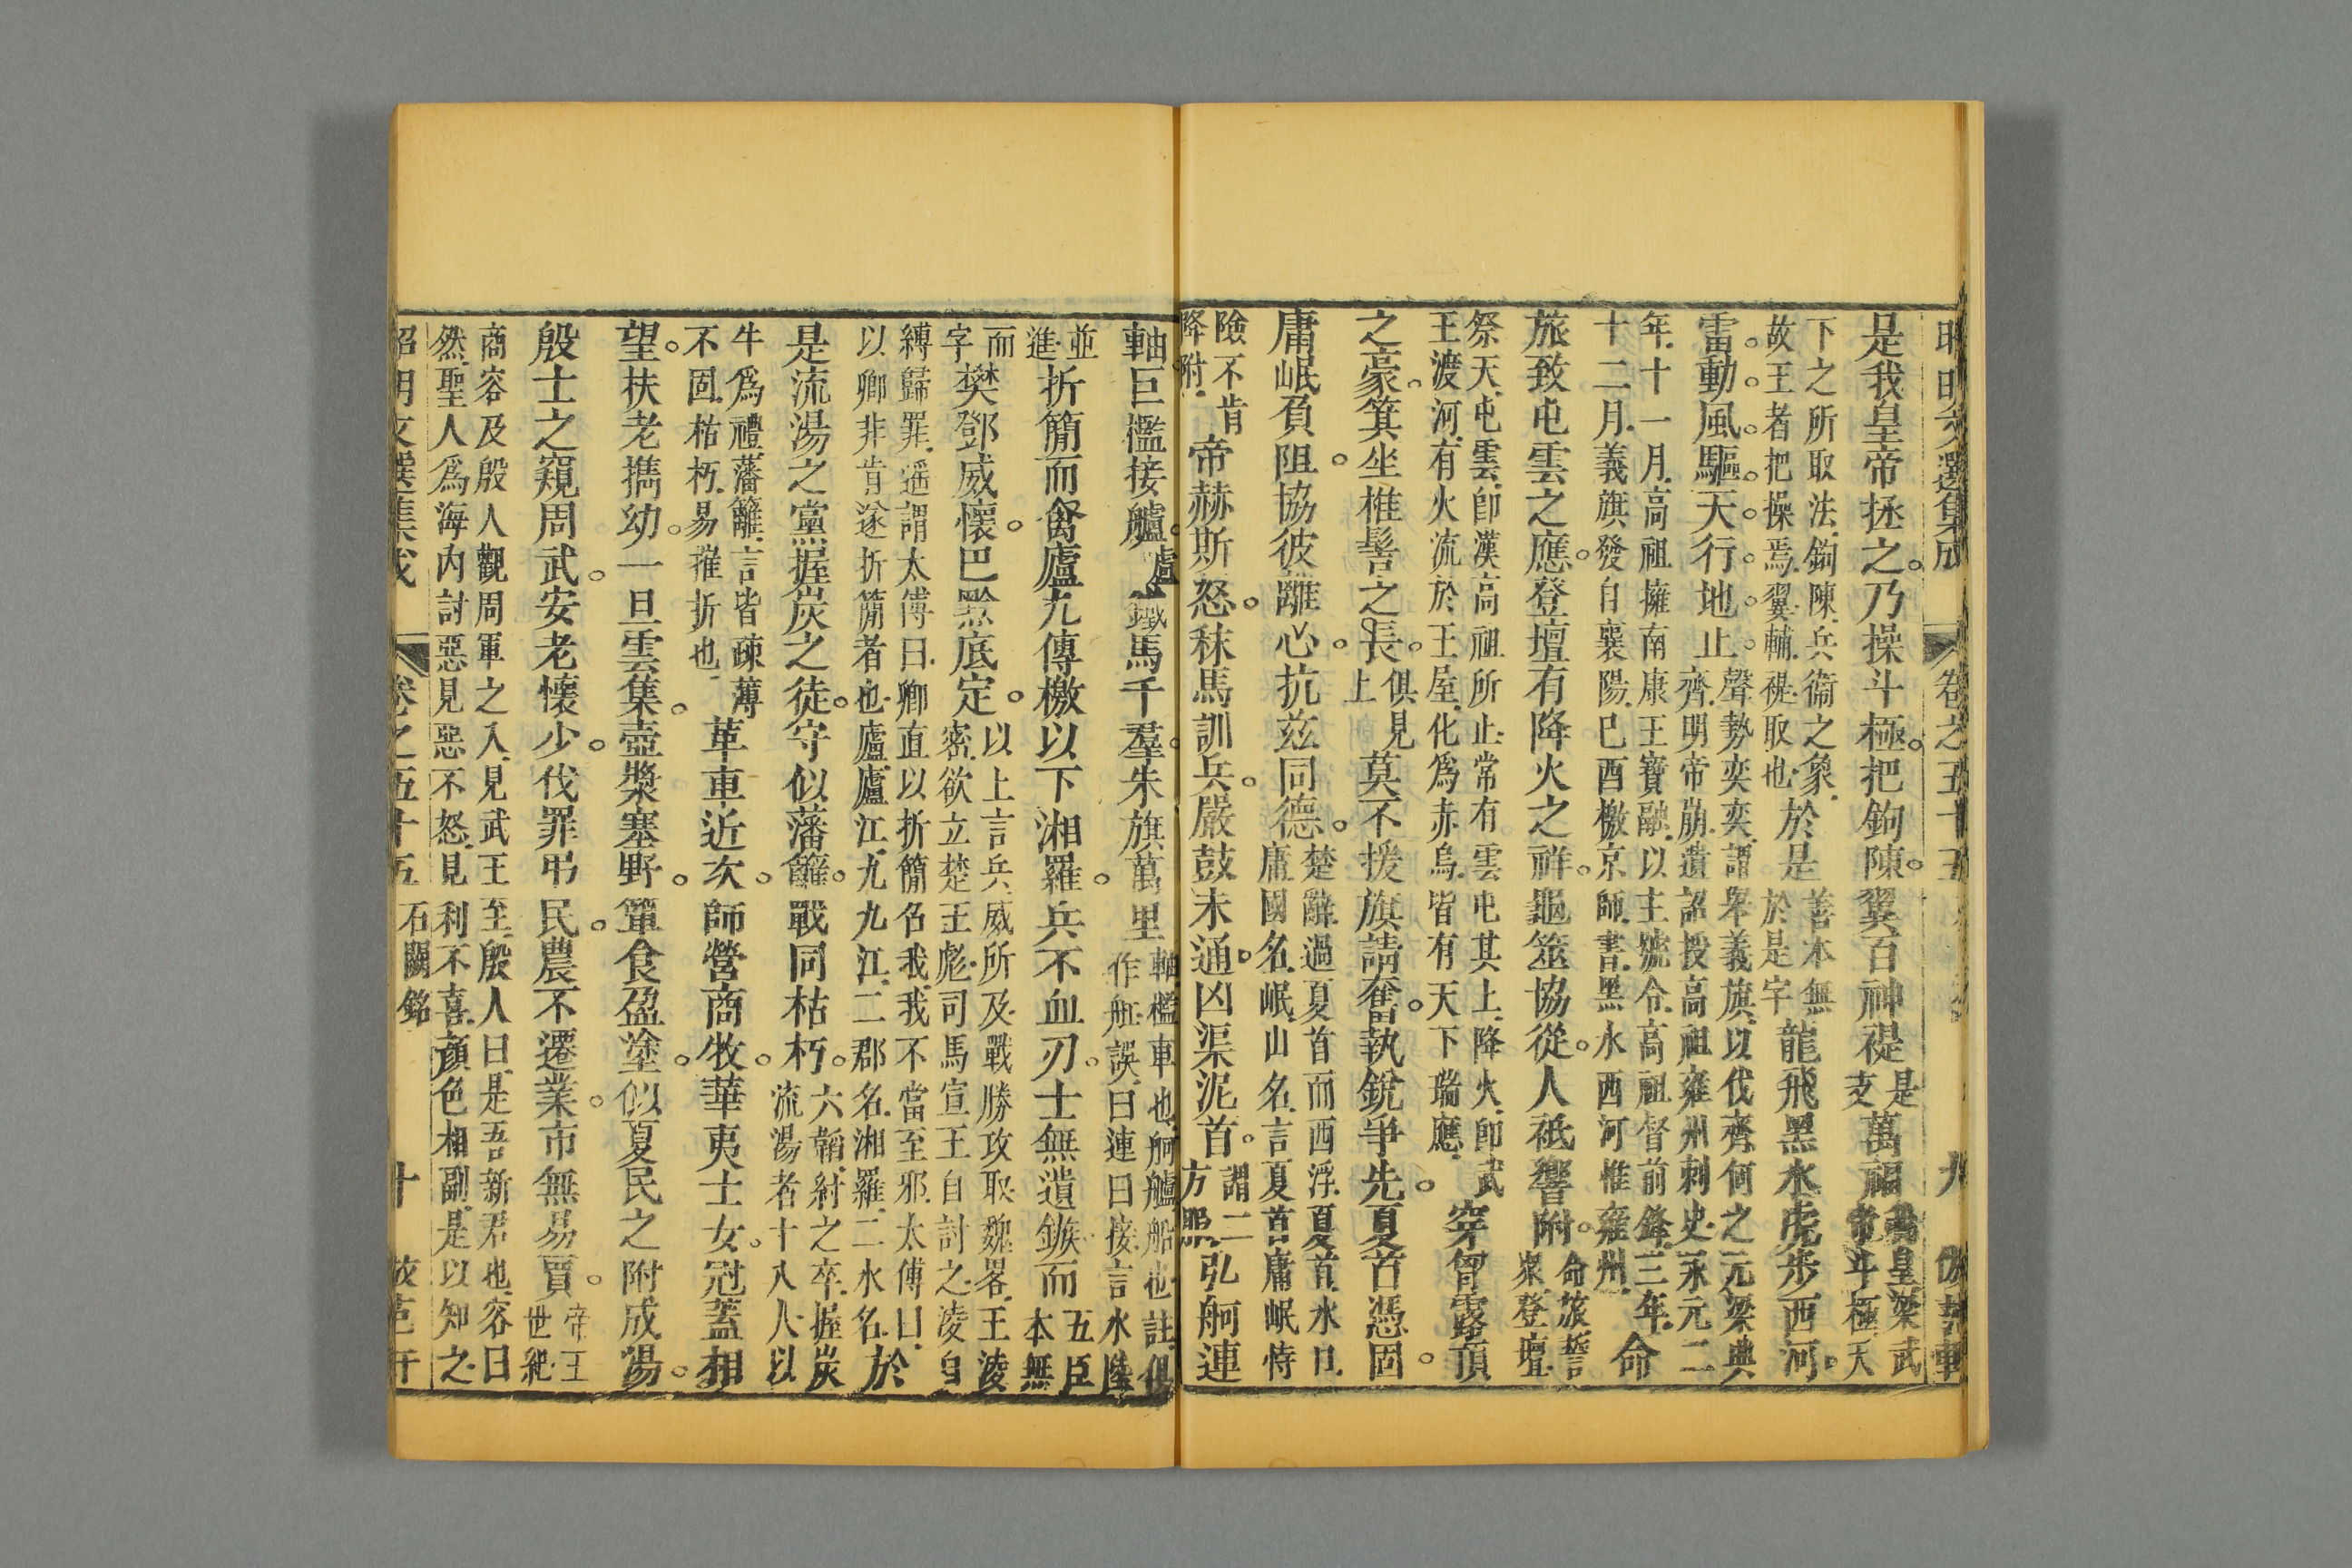 昭明文選集成 卷之五十五 九 倣范軒
是我皇帝拯之乃操斗極把鉤陳翼百神禔是支萬福爲皇梁武帝斗極天
下之所取法鉤陳兵衞之象
故王者把操焉翼輔禔取也於是善本無於是字龍飛黑水虎步西河
雷動風驅天行地止聲勢奕奕謂舉義旗以伐齊何之元梁典
齊明帝崩遺詔授高祖雍州刺史永元二
年十一月高祖擁南康王寶融以主號令高祖督前鋒三年
十二月義旗發自襄陽已酉檄京師書黑水西河惟雍州命
旅致屯雲之應登壇有降火之祥龜筮協從人祗響附命旅誓
衆登壇
祭天屯雲卽漢高祖所止常有雲屯其上降火卽武
王渡河有火流於王屋化爲赤烏皆有天下瑞應穿胷露頂
之豪箕坐椎髻之長俱見上莫不援旗請奮執銳爭先夏首憑固
庸岷負阻協彼離心抗茲同德楚辭過夏首而西浮夏首水口
庸國名岷山名言夏首庸岷恃
險不肯
降附帝赫斯怒秣馬訓兵嚴鼓未通凶渠泥首謂二方熙弘舸連
軸巨檻接艫鐵馬千羣朱旗萬里軸檻車也舸艫船也註俱
作舡誤曰連曰接言水陸
並
進折簡而禽廬九傳檄以下湘羅兵不血刃士無遺鏃而五臣本無
而
字樊鄧威懷巴黔底定以上言兵威所及戰勝攻取魏畧王淩
密欲立楚王彪司馬宣王自討之淩自
縛歸罪遥謂太傅曰卿直以折簡召我我不當至邪太傅曰
以卿非肯逐折簡者也廬廬江九九江二郡名湘羅二水名於
是流湯之黨握炭之徒守似藩籬戰同枯朽六韜紂之卒握炭
流湯者十八人以
牛爲禮藩籬言皆疎薄
不固枯朽易摧折也革車近次師營商牧華夷士女冠蓋相
望扶老攜幼一旦雲集壺漿塞野簞食盈塗似夏民之附成湯
殷士之窺周武安老懷少伐罪弔民農不遷業市無易賈帝王
世紀
商容及殷人觀周軍之入見武王至殷人曰是吾新君也容曰
然聖人爲海内討惡見惡不怒見利不喜顔色相副是以知之
昭明文選集成 卷之五十五 石闕銘 十